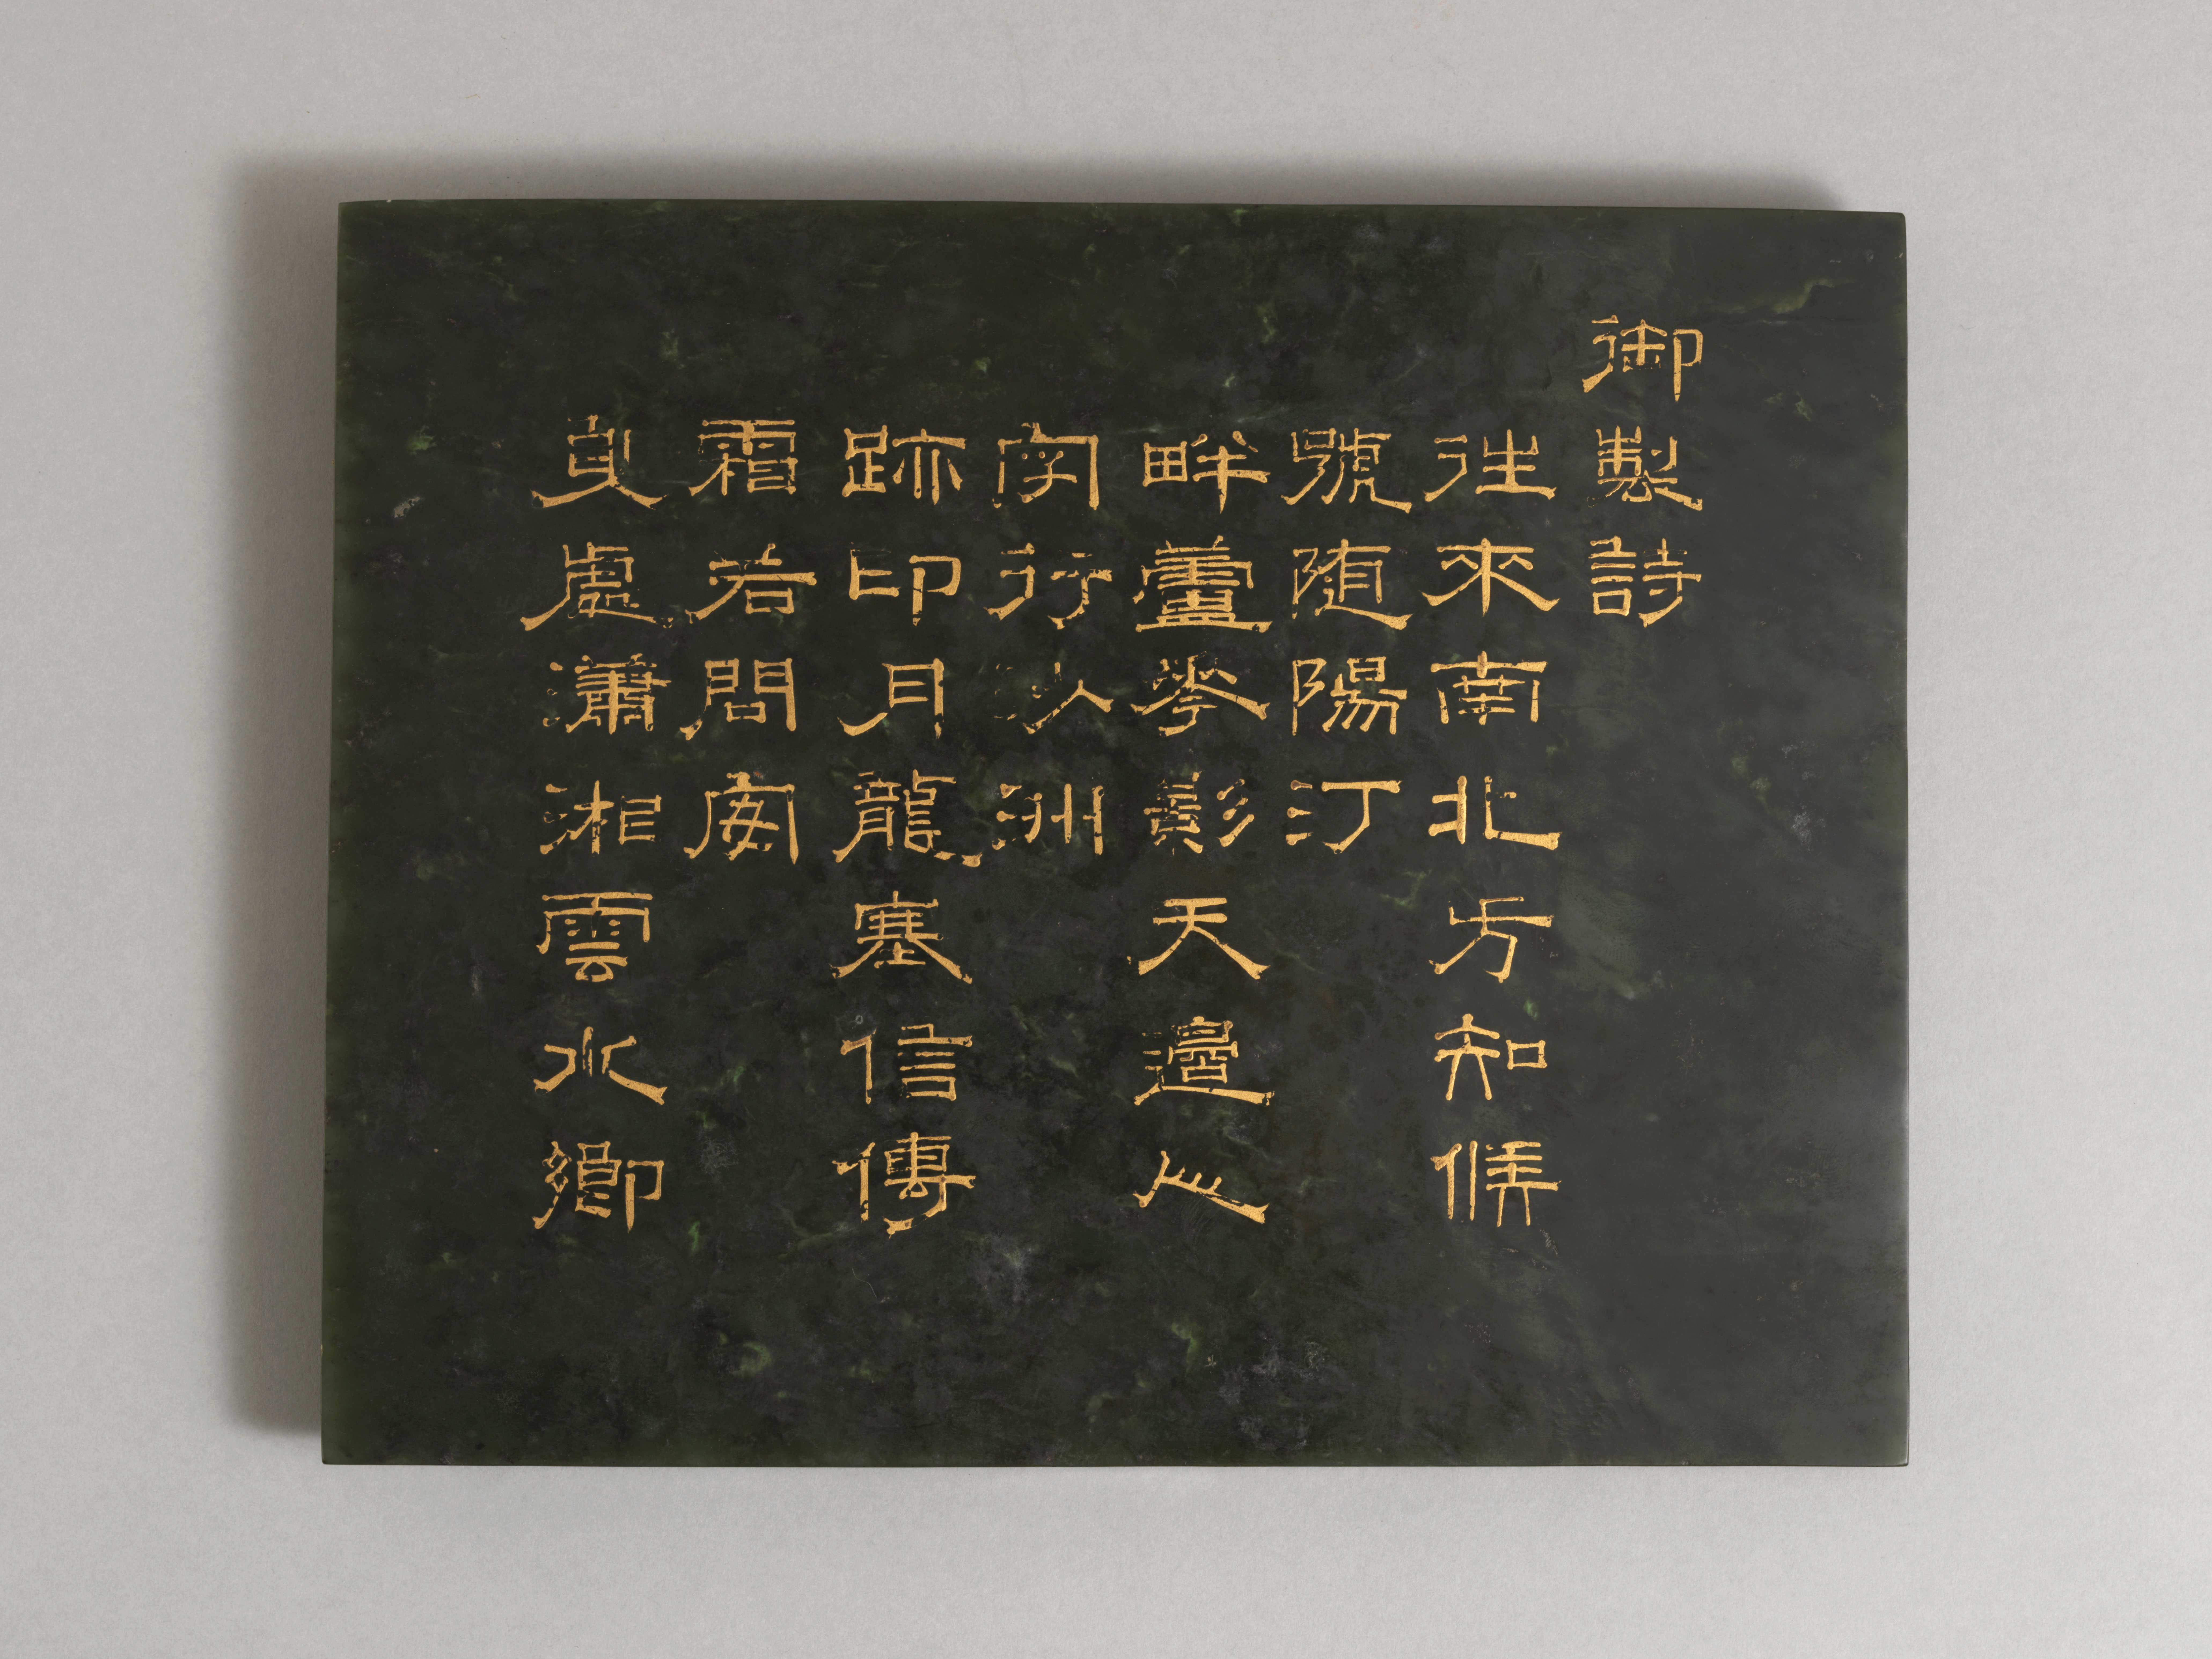 御製詩
往來南北方知候
號随陽汀
畔蘆花影天邊心
字行沙洲
跡印月龍塞信傳
霜若問安
身處瀟湘雲水鄉